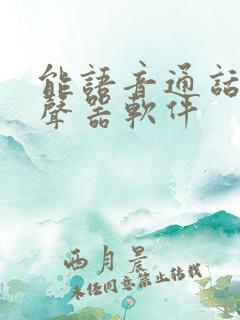 能語音通話
聲器軟件
西月晨
未经同意禁止转载